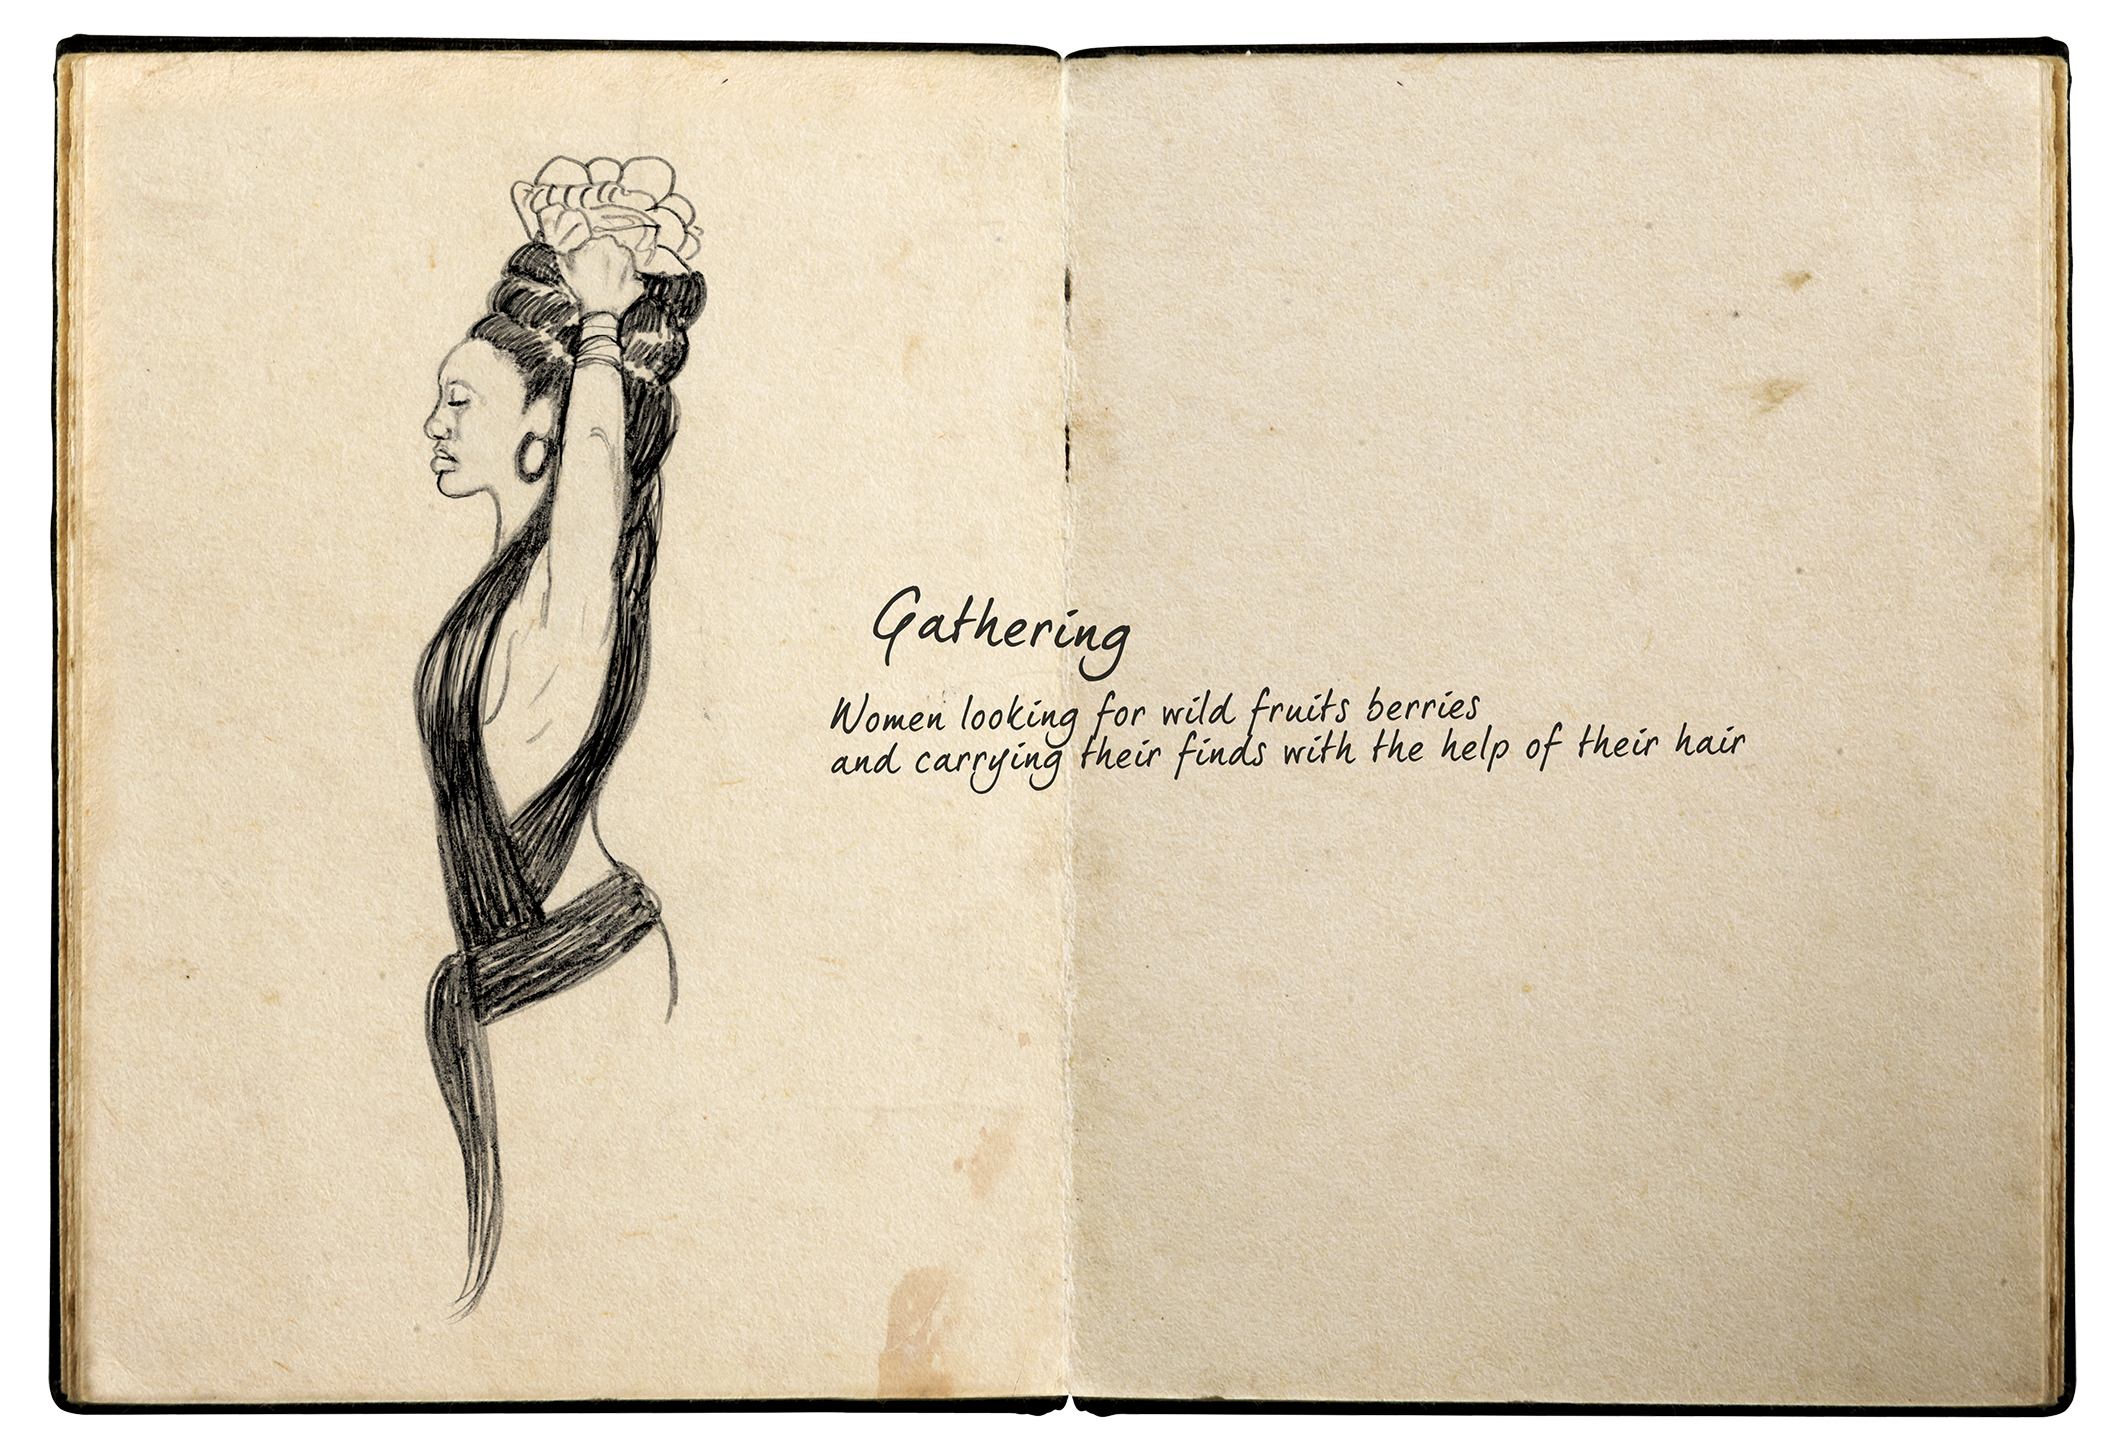 Gathering
Women looking for wild fruits berries
and carrying their finds with the help of their hair